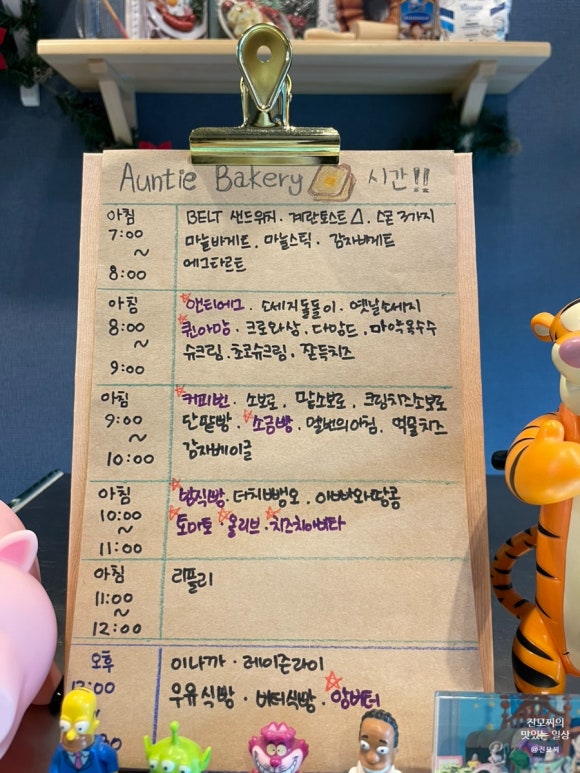 Auntie Bakery 시간!!
아침
7:00
~
8:00
BELT 샌드위치 . 계란토스트 △ . 스콘 3가지
마늘바게트 . 마늘스틱 . 감자바게트
에그타르트
아침
8:00
~
9:00
앤티에그 . 소세지돌돌이 . 옛날소세지
퀸아망 . 크로와상 . 다망드 . 마약옥수수
슈크림 . 초코슈크림 . 잔득치즈
아침
9:00
~
10:00
커피번 . 소보로 . 맘소보로 . 크림치즈소보로
단팥빵 . 소금빵 . 멜번의아침 . 먹물치즈
감자베이글
아침
10:00
~
11:00
밤식빵 . 더치뺑오 . 아빠와땅콩
토마토 . 올리브 . 치즈치아바타
아침
11:00
~
12:00
리플리
오후
12:00
30
이나까 . 레이즌라이
우유식빵 . 버터식빵 . 앙버터
진모찌의
맛있는 일상
@진모찌